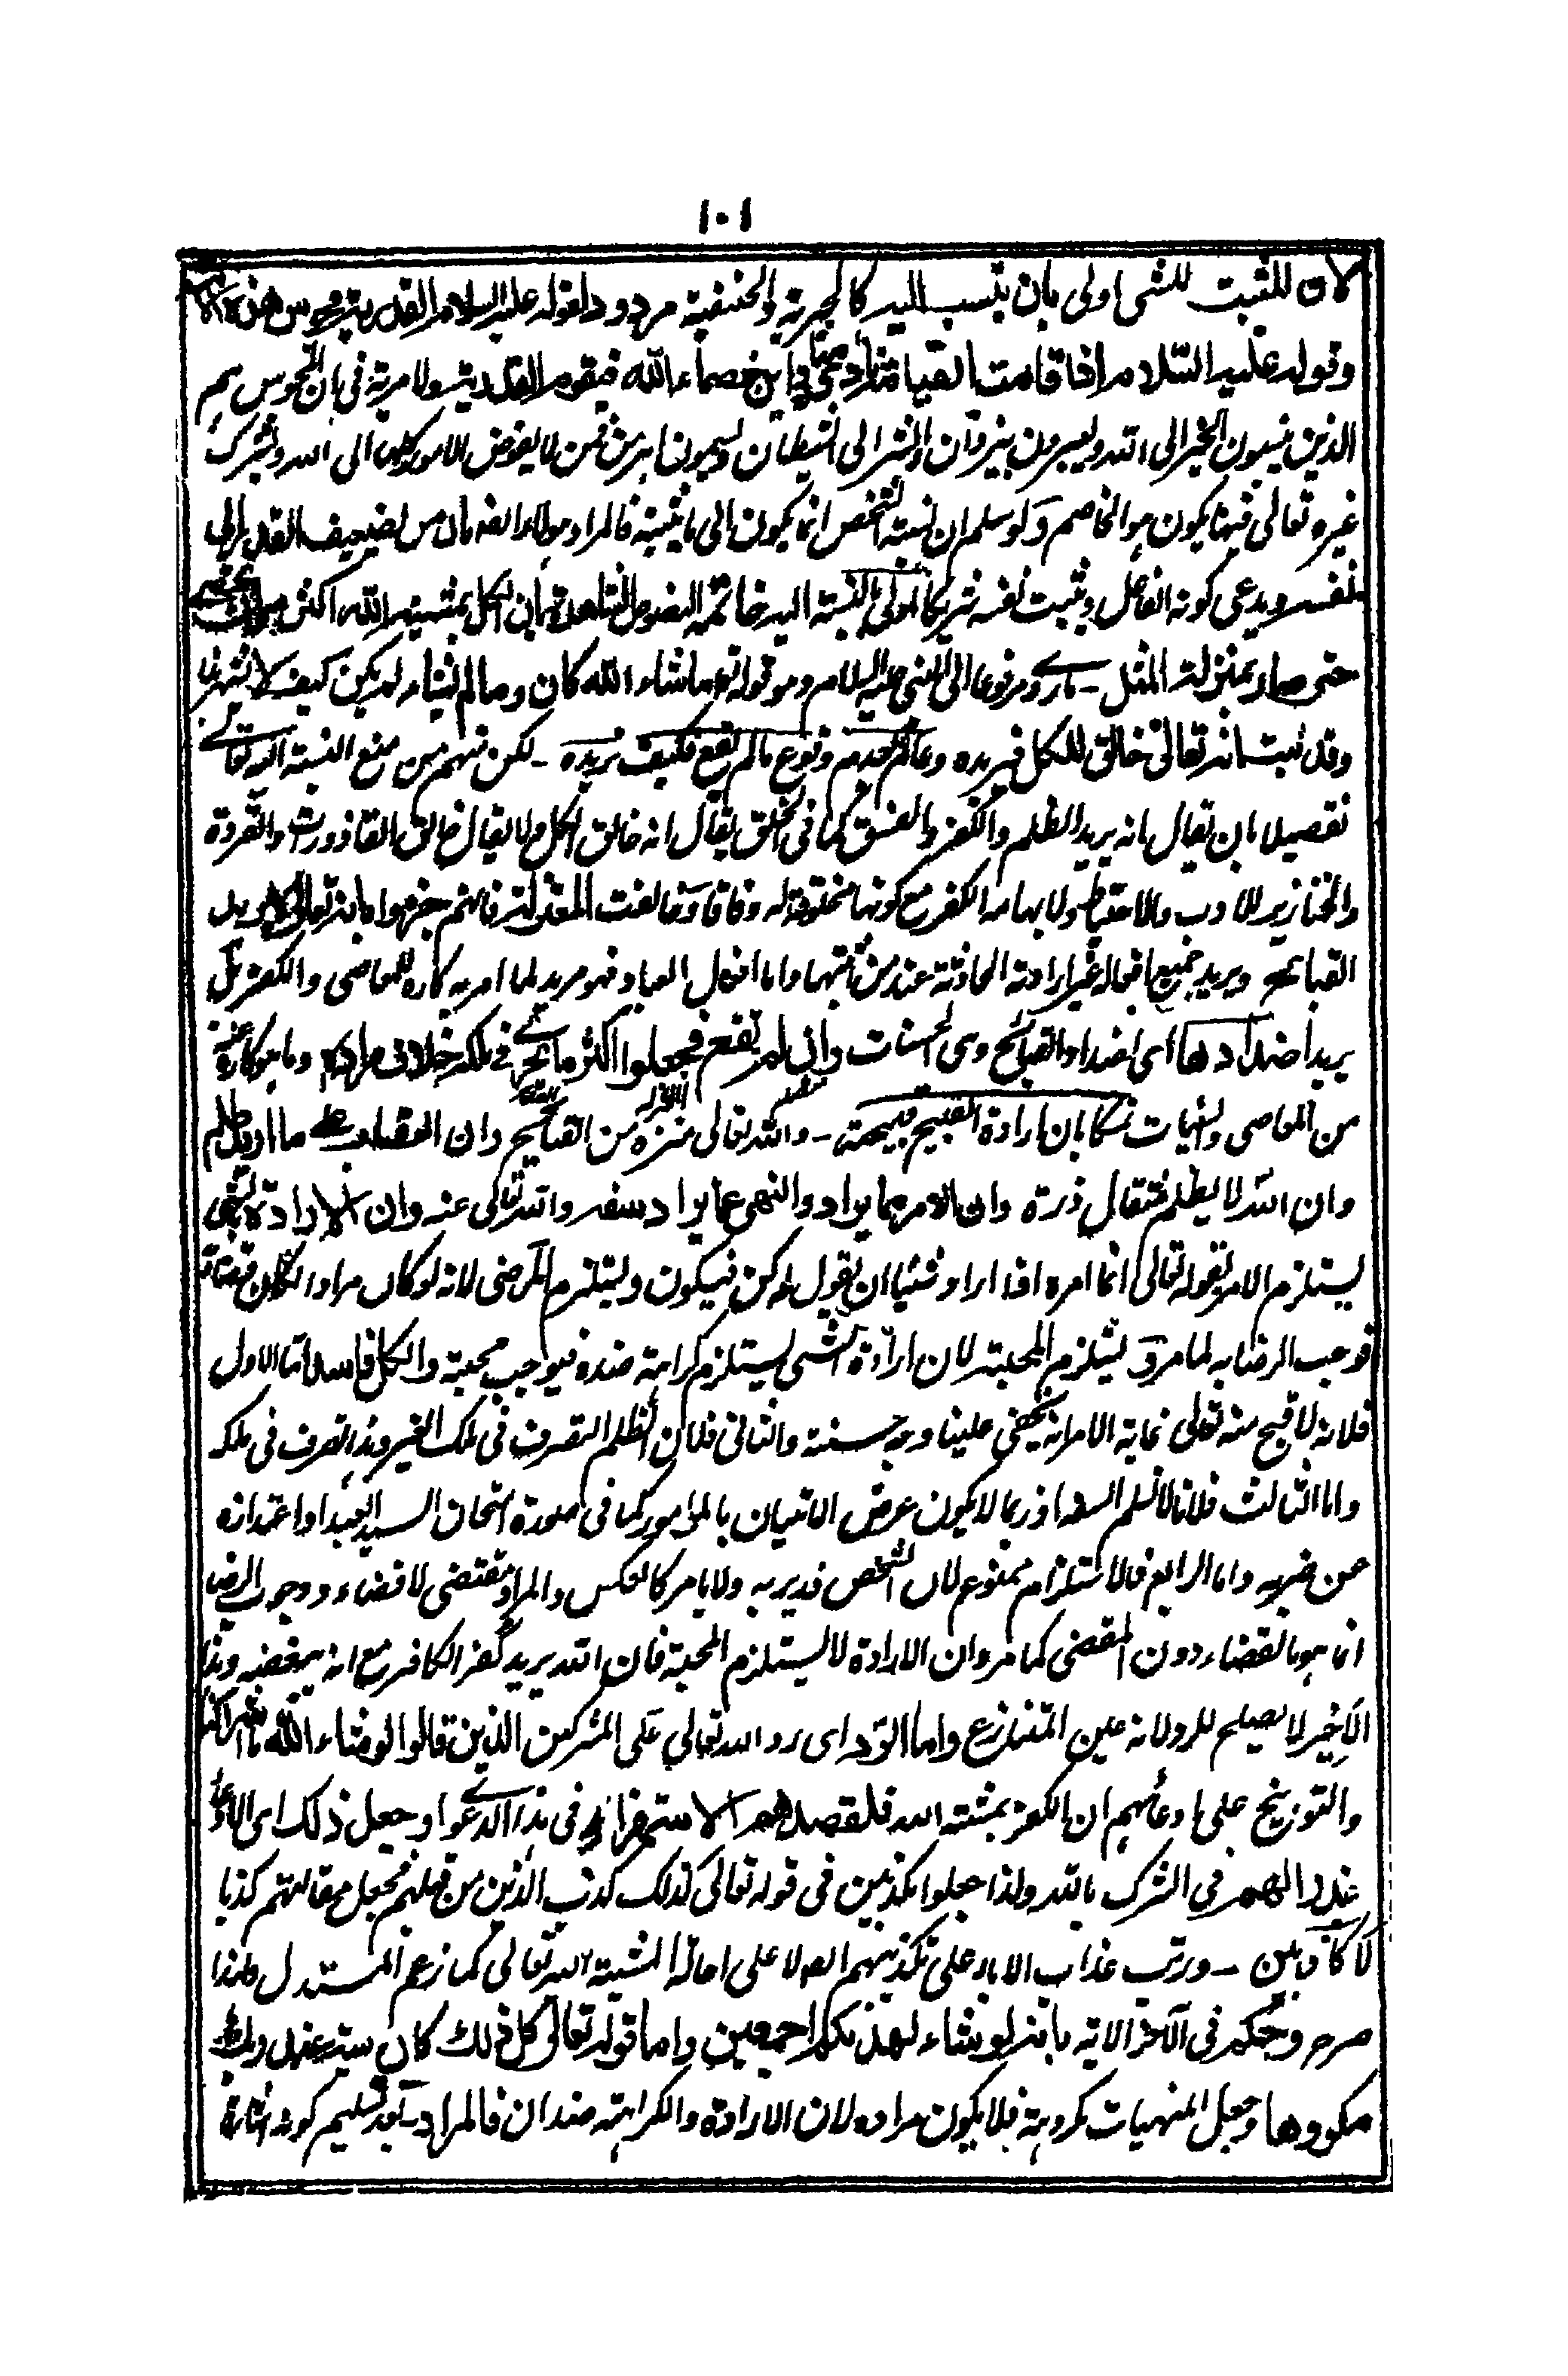 ١٠١
لان المثبت للشى اولى بان ينسب اليه كالجبرية والحنفية مردود لقوله عليه السلام القدرية مجوس هذه الامة
وقوله عليه السلام اذا قامت القيامة نادى مناد اين خصماء الله فيقوم القدرية ولا مرية فى ان المجوس هم
الذين ينسبون الخير الى الله ويسمونه يزدان والشر الى الشيطان ويسمونه اهرمن فمن لا يفوض الامور كلها الى الله ويشرك
غيره تعالى فيها يكون هو المخاصم ولو سلم ان نسبة الشخص انما يكون الى ما يثبته فالمراد ايضا بان من يضيف القدر الى
نفسه ويدعى كونه الفاعل ويثبت نفسه شريكا اولى بالنسبة اليه خاتمة النصوص الشاهدة بان الكل بمشيته الله اكثر من ان تحصى
حتى صار بمنزلة المثل ما روى مرفوعا الى النبى عليه السلام وهو قوله ما شاء الله كان وما لم يشاء لم يكن كيف لا
وقد ثبت انه تعالى خالق للكل فيريده وعالم بعدم وقوع ما لم يقع فكيف يريده لكن منهم من منع النسبة اليه تعالى
تفصيلا بان يقال انه يريد الظلم والكفر والفسق كما فى الخلق يقال انه خالق الكل ولا يقال خالق القاذورات والقردة
والخنازير للادب والاحتياط ولايهامه الكفر مع كونها مخلوقة له وفاقا وخالفت المعتزلة فانهم جزموا بانه تعالى لا يريد
القبائح ويريد جميع افعاله غير ارادته الحادثة عند من اثبتها واما افعال العباد فهو مريد لما امر به كاره للمعاصى والكفر بل
يريد اضدادها اى اضداد القبائح وهى الحسنات وان لم تقع فجعلوا اكثر ما يجرى فى ملكه خلاف مراده وما هو كاره عنه
من المعاصى والمنهيات تمسكا بان ارادة القبيح قبيحة والله تعالى منزه من القبائح وان العقاب على ما اراد ظلم
وان الله لا يظلم مثقال ذرة وان الامر بما يراد والنهى عما يراد سفه والله تعالى عنه وان الارادة بالشى
يستلزم الامر لقوله تعالى انما امره اذا اراد شئيا ان يقول له كن فيكون ويستلزم المرضى لانه لو كان مرادا لكان قضائه
فوجب الرضا به لما مر ويستلزم المحبة لان ارادة الشى يستلزم كراهة ضده فيوجب محبة والكل فاسد اما الاول
فلانه لا قبح منه تعالى غاية الامر انه يخفى علينا وجه حسنه والثانى فلان الظلم التصرف فى ملك الغير وهذا تصرف فى ملكه
واما الثالث فلانا لا نسلم السفه اذ ربما لا يكون غرض الاتيان بالمامور كما فى صورة امتحان السيد العبد او اعتذاره
عن ضربه واما الرابع فالاستلزام ممنوع لان الشخص قد يريد به ولا يامر كالعكس والمراد مقتضى لا قضاء ووجوب الرضا
انما هو بالقضاء دون المقضى كما مر وان الارادة لا يستلزم المحبة فان الله يريد كفر الكافر مع انه يبغضه وهذا
الاخير لا يصلح للرد لانه عين المتنازع واما الرد اى رد الله تعالى على المشركين الذين قالوا لو شاء الله ما اشركنا
والتوبيخ على ادعائهم ان الكفر بمشيته الله فلقصدهم الاستهزاء فى هذا الدعوى وجعل ذلك اى الادعاء
عذرا لهم فى الشرك بالله ولذا جعلوا مكذبين فى قوله تعالى كذلك كذب الذين من قبلهم فجعل مقالتهم كذبا
لا كاذبين ورتب عذاب الاباء على تكذيبهم لا على احالة المشيته الله تعالى كما زعم المستدل ولهذا
صرح وحكم فى الآخر الاية بانه لو شاء لهدىكم اجمعين واما قوله تعالى كل ذلك كان سيئه عند ربك
مكروها وجعل المنهيات مكروهة فلا يكون مراده لان الارادة والكراهة ضدان فالمراد بعد تسليم كونه اشارة